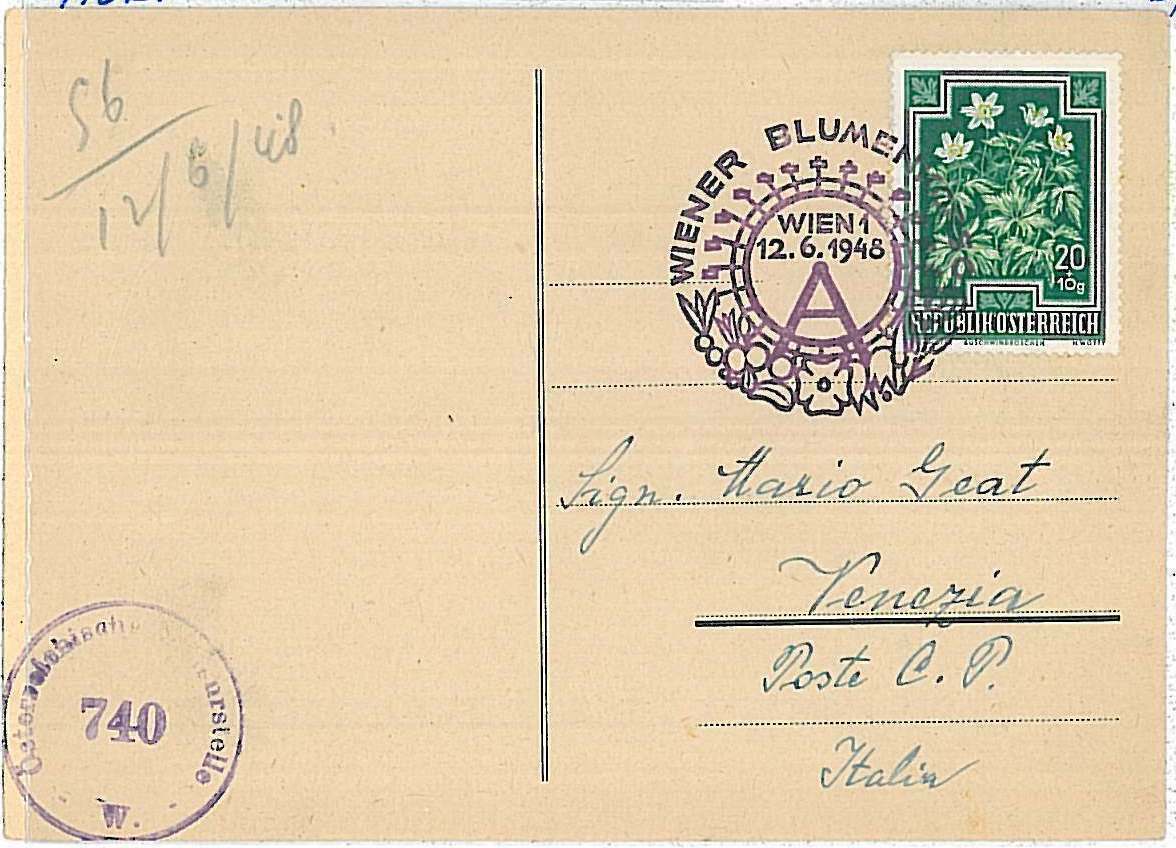 56
12/6/48
WIENER BLUMEN
WIEN 1
12.6.1948
A
20
+10g
REPUBLIK ÖSTERREICH
Sign. Mario Geat
Venezia
Poste C. P.
Italia
Österreichische Zensurstelle
740
W.